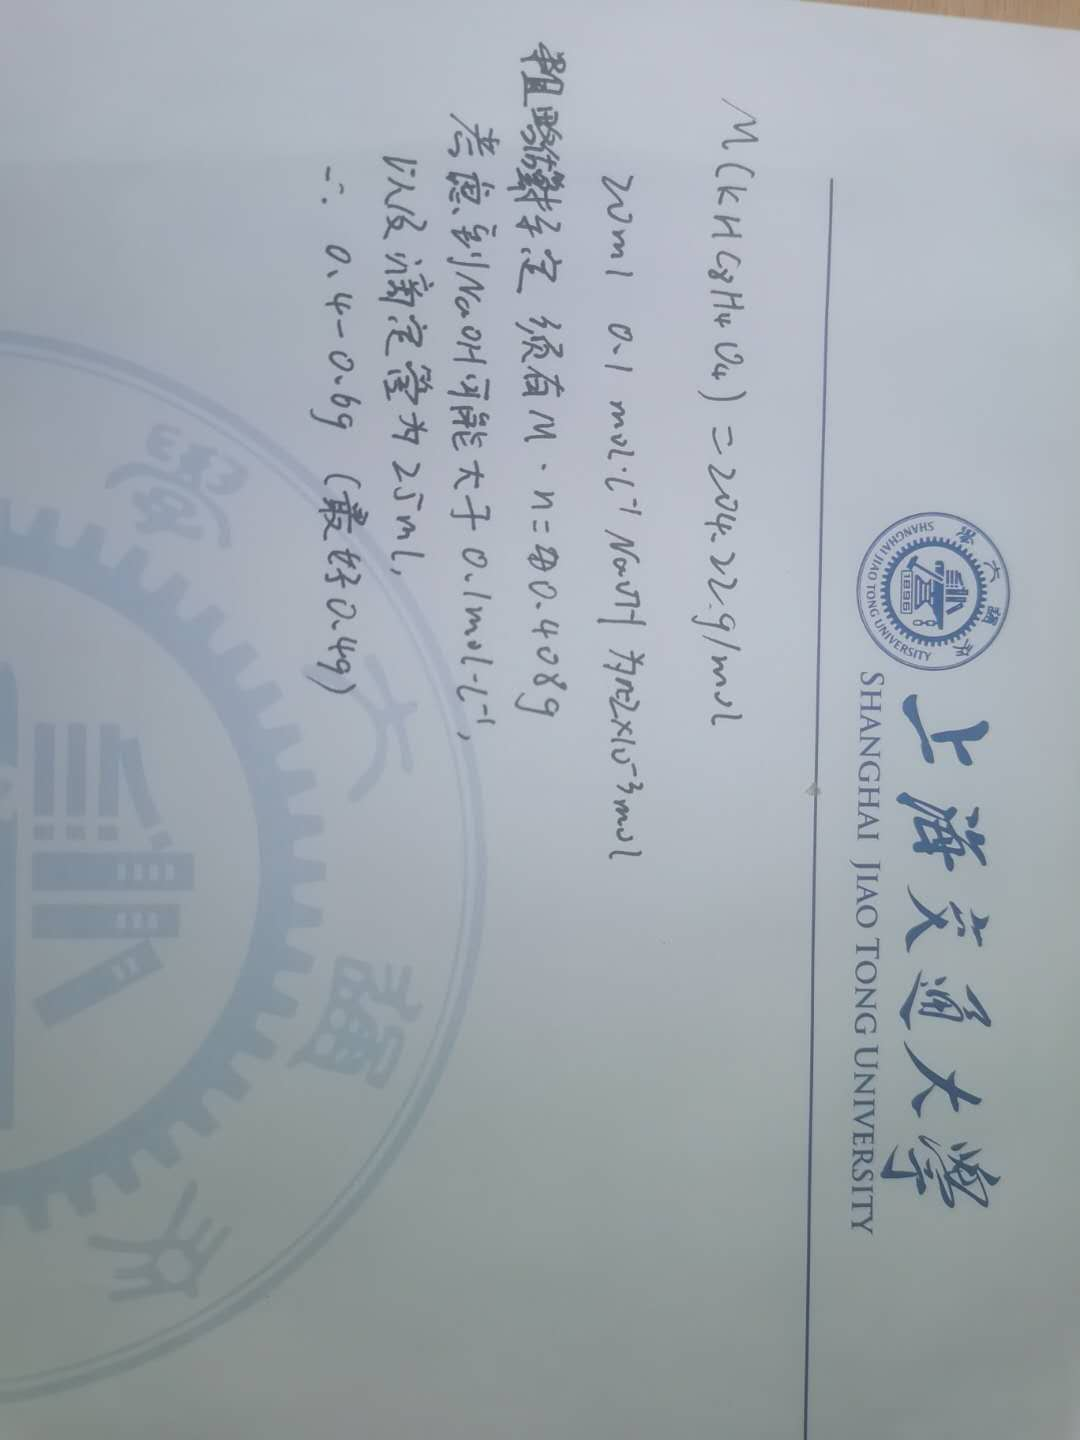 上海交通大学
SHANGHAI JIAO TONG UNIVERSITY
SHANGHAI JIAO TONG UNIVERSITY
1896
M(KHC8H4O4) = 204.22 g/mol
20ml 0.1 mol·L⁻¹ NaOH 为n=2×10⁻³mol
粗略估算至定 须有M·n=0.408g
考虑到NaOH可能大于0.1mol·L⁻¹,
以及滴定管为25ml,
∴ 0.4-0.6g (最好0.4g)